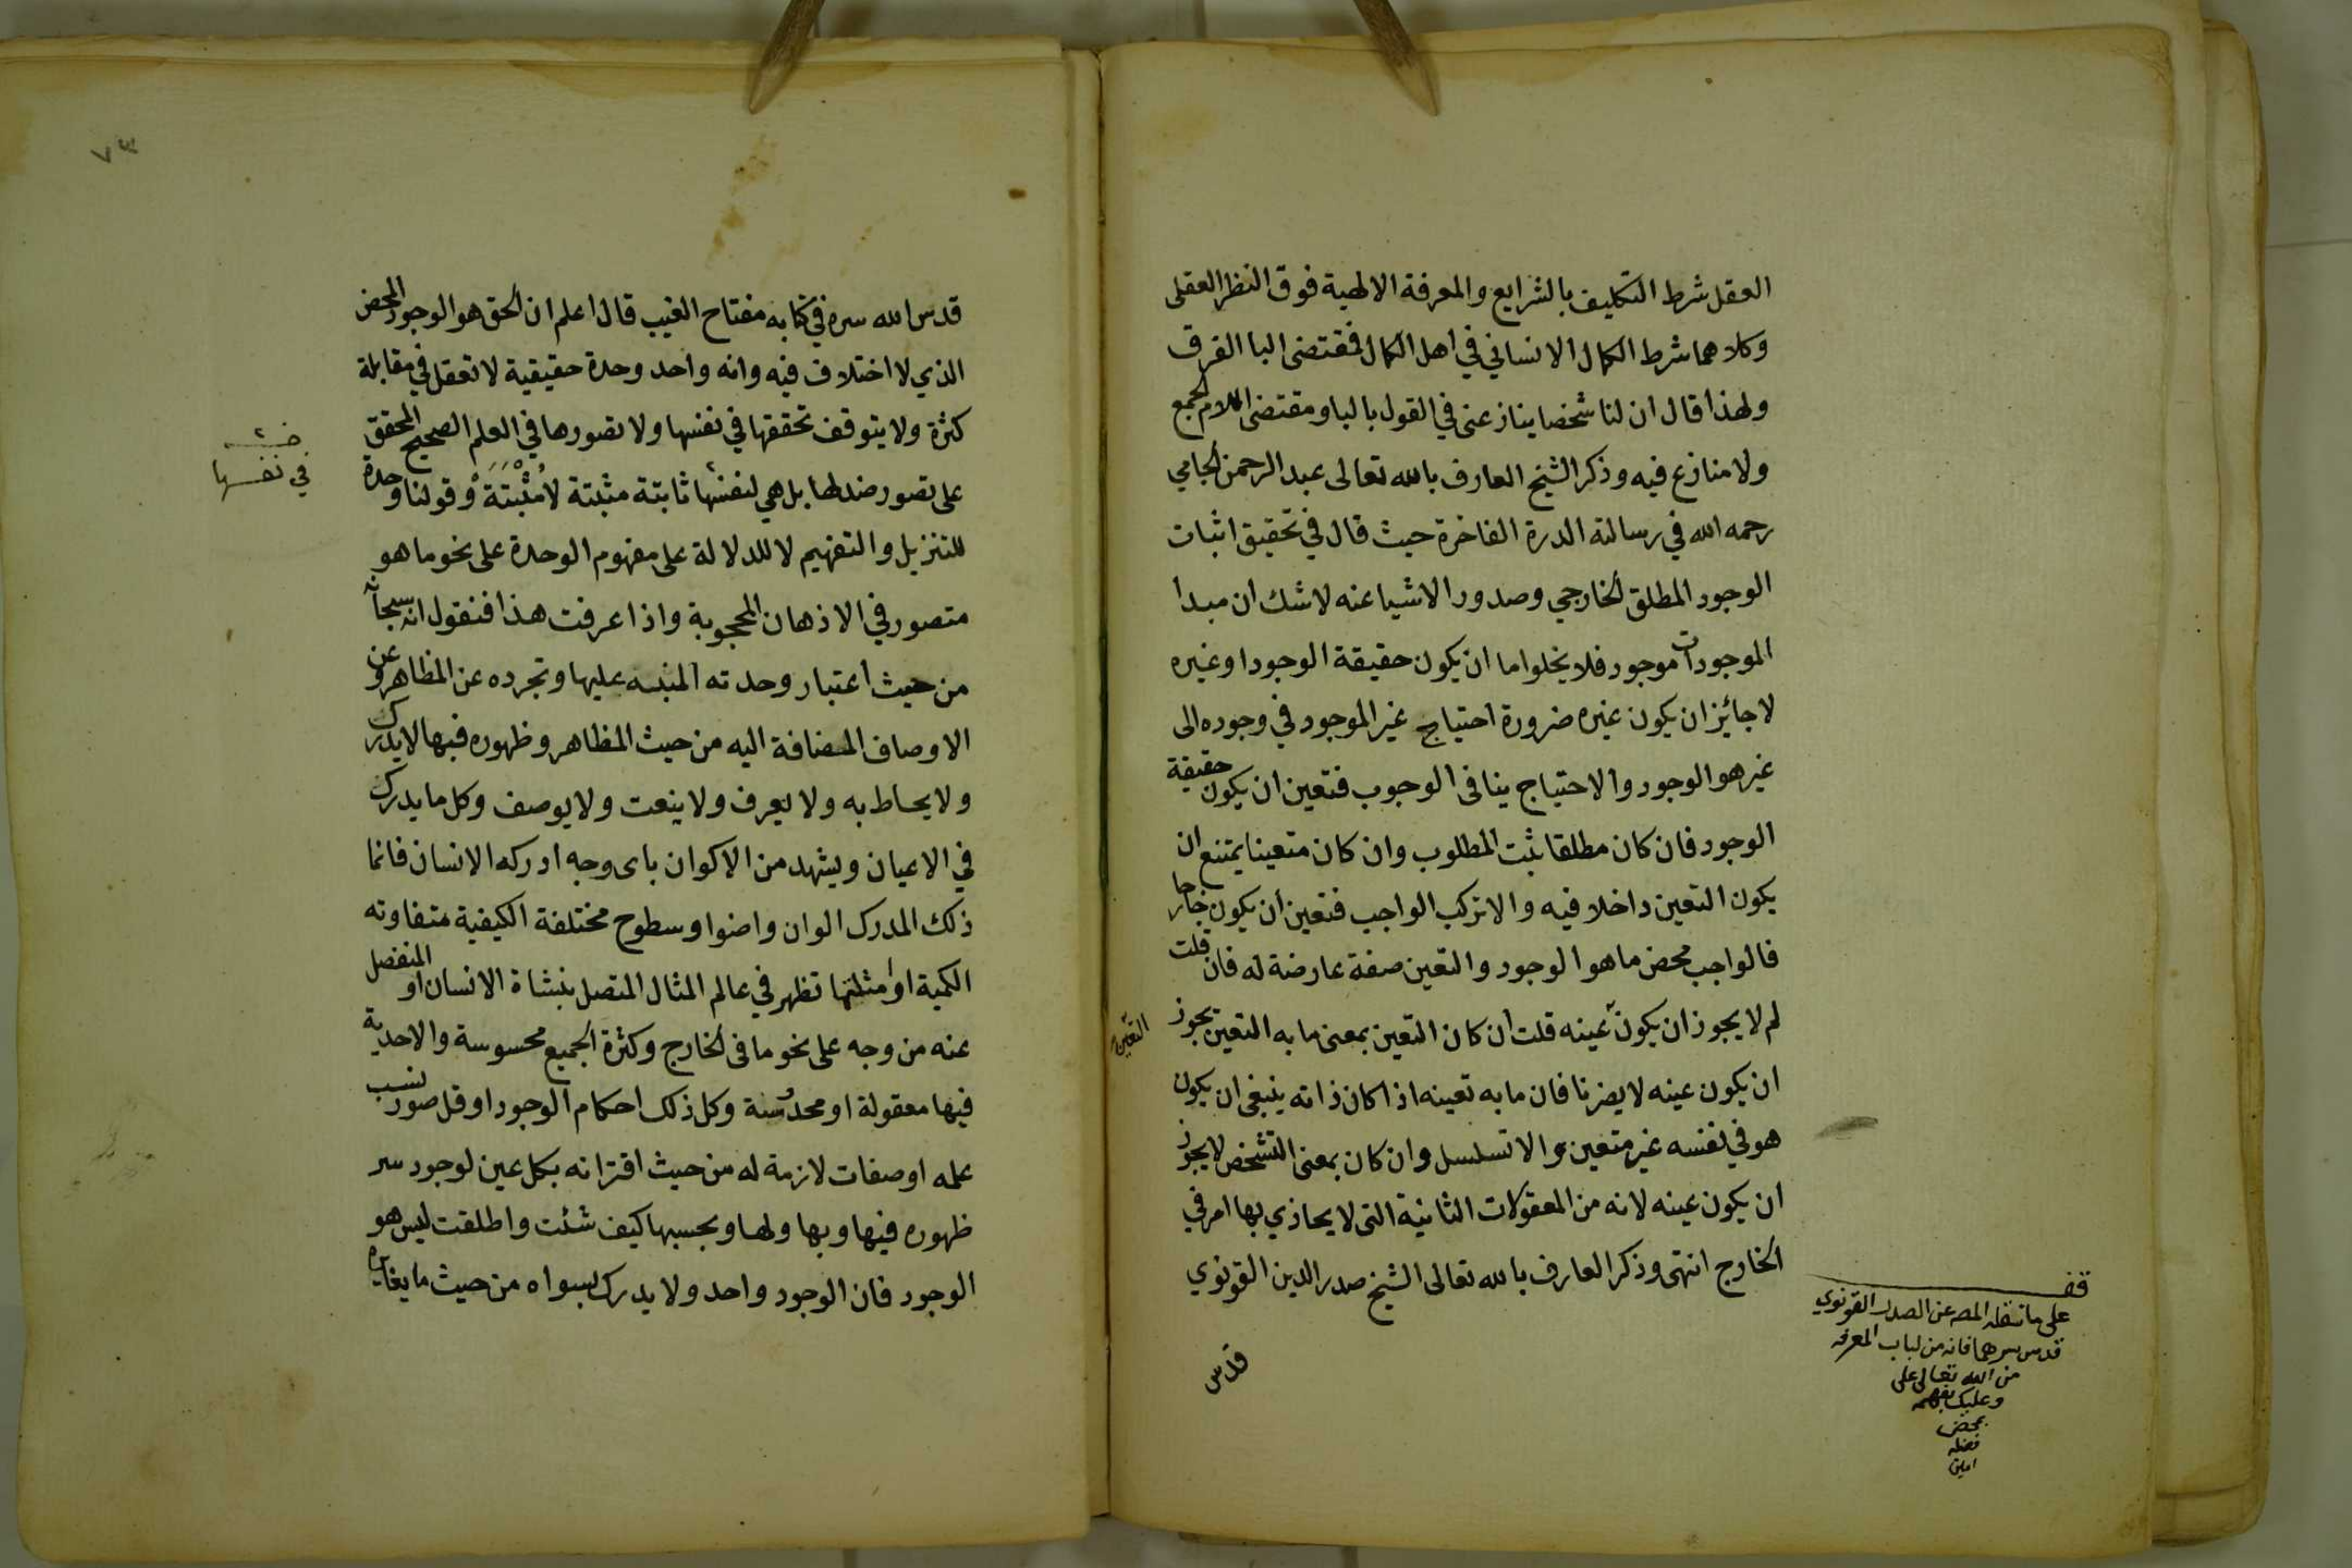 العقل شرط التكليف بالشرايع والمعرفة الالهية فوق النظر العقلى
وكلاهما شرط الكمال الانساني في اهل الكمال فمقتضى البا الفرق
ولهذا قال ان لنا شخصا ينازعنى في القول بالبا ومقتضى اللام الجمع
ولا منازع فيه وذكر الشيخ العارف بالله تعالى عبد الرحمن الجامي
رحمه الله في رسالته الدرة الفاخرة حيث قال في تحقيق اثبات
الوجود المطلق الخارجي وصدور الاشيا عنه لا شك ان مبدا
الموجودات موجود فلا يخلوا ما ان يكون حقيقة الوجود او غيره
لا جائز ان يكون غيره ضرورة احتياج غير الموجود في وجوده الى
غير هو الوجود والاحتياج ينافى الوجوب فتعين ان يكون حقيقة
الوجود فان كان مطلقا ثبت المطلوب وان كان متعينا يمتنع ان
يكون التعين داخلا فيه والا تركب الواجب فتعين ان يكون خارجا
فالواجب محض ما هو الوجود والتعين صفة عارضة له فان قلت
لم لا يجوز ان يكون عينه قلت ان كان التعين بمعنى ما به التعين يجوز
التعين
ان يكون عينه لا يضرنا فان ما به تعينه اذا كان ذاته ينبغى ان يكون
هو في نفسه غير متعين والا تسلسل وان كان بمعنى التشخص لا يجوز
ان يكون عينه لانه من المعقولات الثانية التى لا يحاذي بها امر في
الخارج انتهى وذكر العارف بالله تعالى الشيخ صدر الدين القونوي
قدس
قف
على ما نقله المصه عن الصدر القونوي
قدس سرهما فانه من لباب المعرفه
من الله تعالى على
وعليك بفهمه
بمحض
فضله
امين
٧٣
قدس الله سره في كتابه مفتاح الغيب قال اعلم ان الحق هو الوجود المحض
الذي لا اختلاف فيه وانه واحد وحدة حقيقية لا تعقل في مقابلة
كثرة ولا يتوقف تحققها في نفسها ولا تصورها في العلم الصحيح المحقق
في نفسها
على تصور ضد لها بل هي لنفسها ثابتة مثبتة لا مُثْبَتَة وقولنا وحدة
للتنزيل والتفهيم لا للدلالة على مفهوم الوحدة على نحو ما هو
متصور في الاذهان المحجوبة واذا عرفت هذا فنقول انه سبحانه
من حيث اعتبار وحدته المنبه عليها وتجرده عن المظاهر وعن
الاوصاف المضافة اليه من حيث المظاهر وظهوره فيها لا يدرك
ولا يحاط به ولا يعرف ولا ينعت ولا يوصف وكل ما يدرك
في الاعيان ويشهد من الاكوان باى وجه ادركه الانسان فانما
ذلك المدرك الوان واضوا وسطوح مختلفة الكيفية متفاوته
الكمية او امثلتها تظهر في عالم المثال المتصل بنشاة الانسان او المنفصل
عنه من وجه على نحو ما فى الخارج وكثرة الجميع محسوسة والاحدية
فيها معقولة او محدوسة وكل ذلك احكام الوجود او قل صور نسب
علمه او صفات لازمة له من حيث اقترانه بكل عين لوجود سر
ظهوره فيها وبها ولها وبحسبها كيف شئت واطلقت ليس هو
الوجود فان الوجود واحد ولا يدرك بسواه من حيث ما يغايره